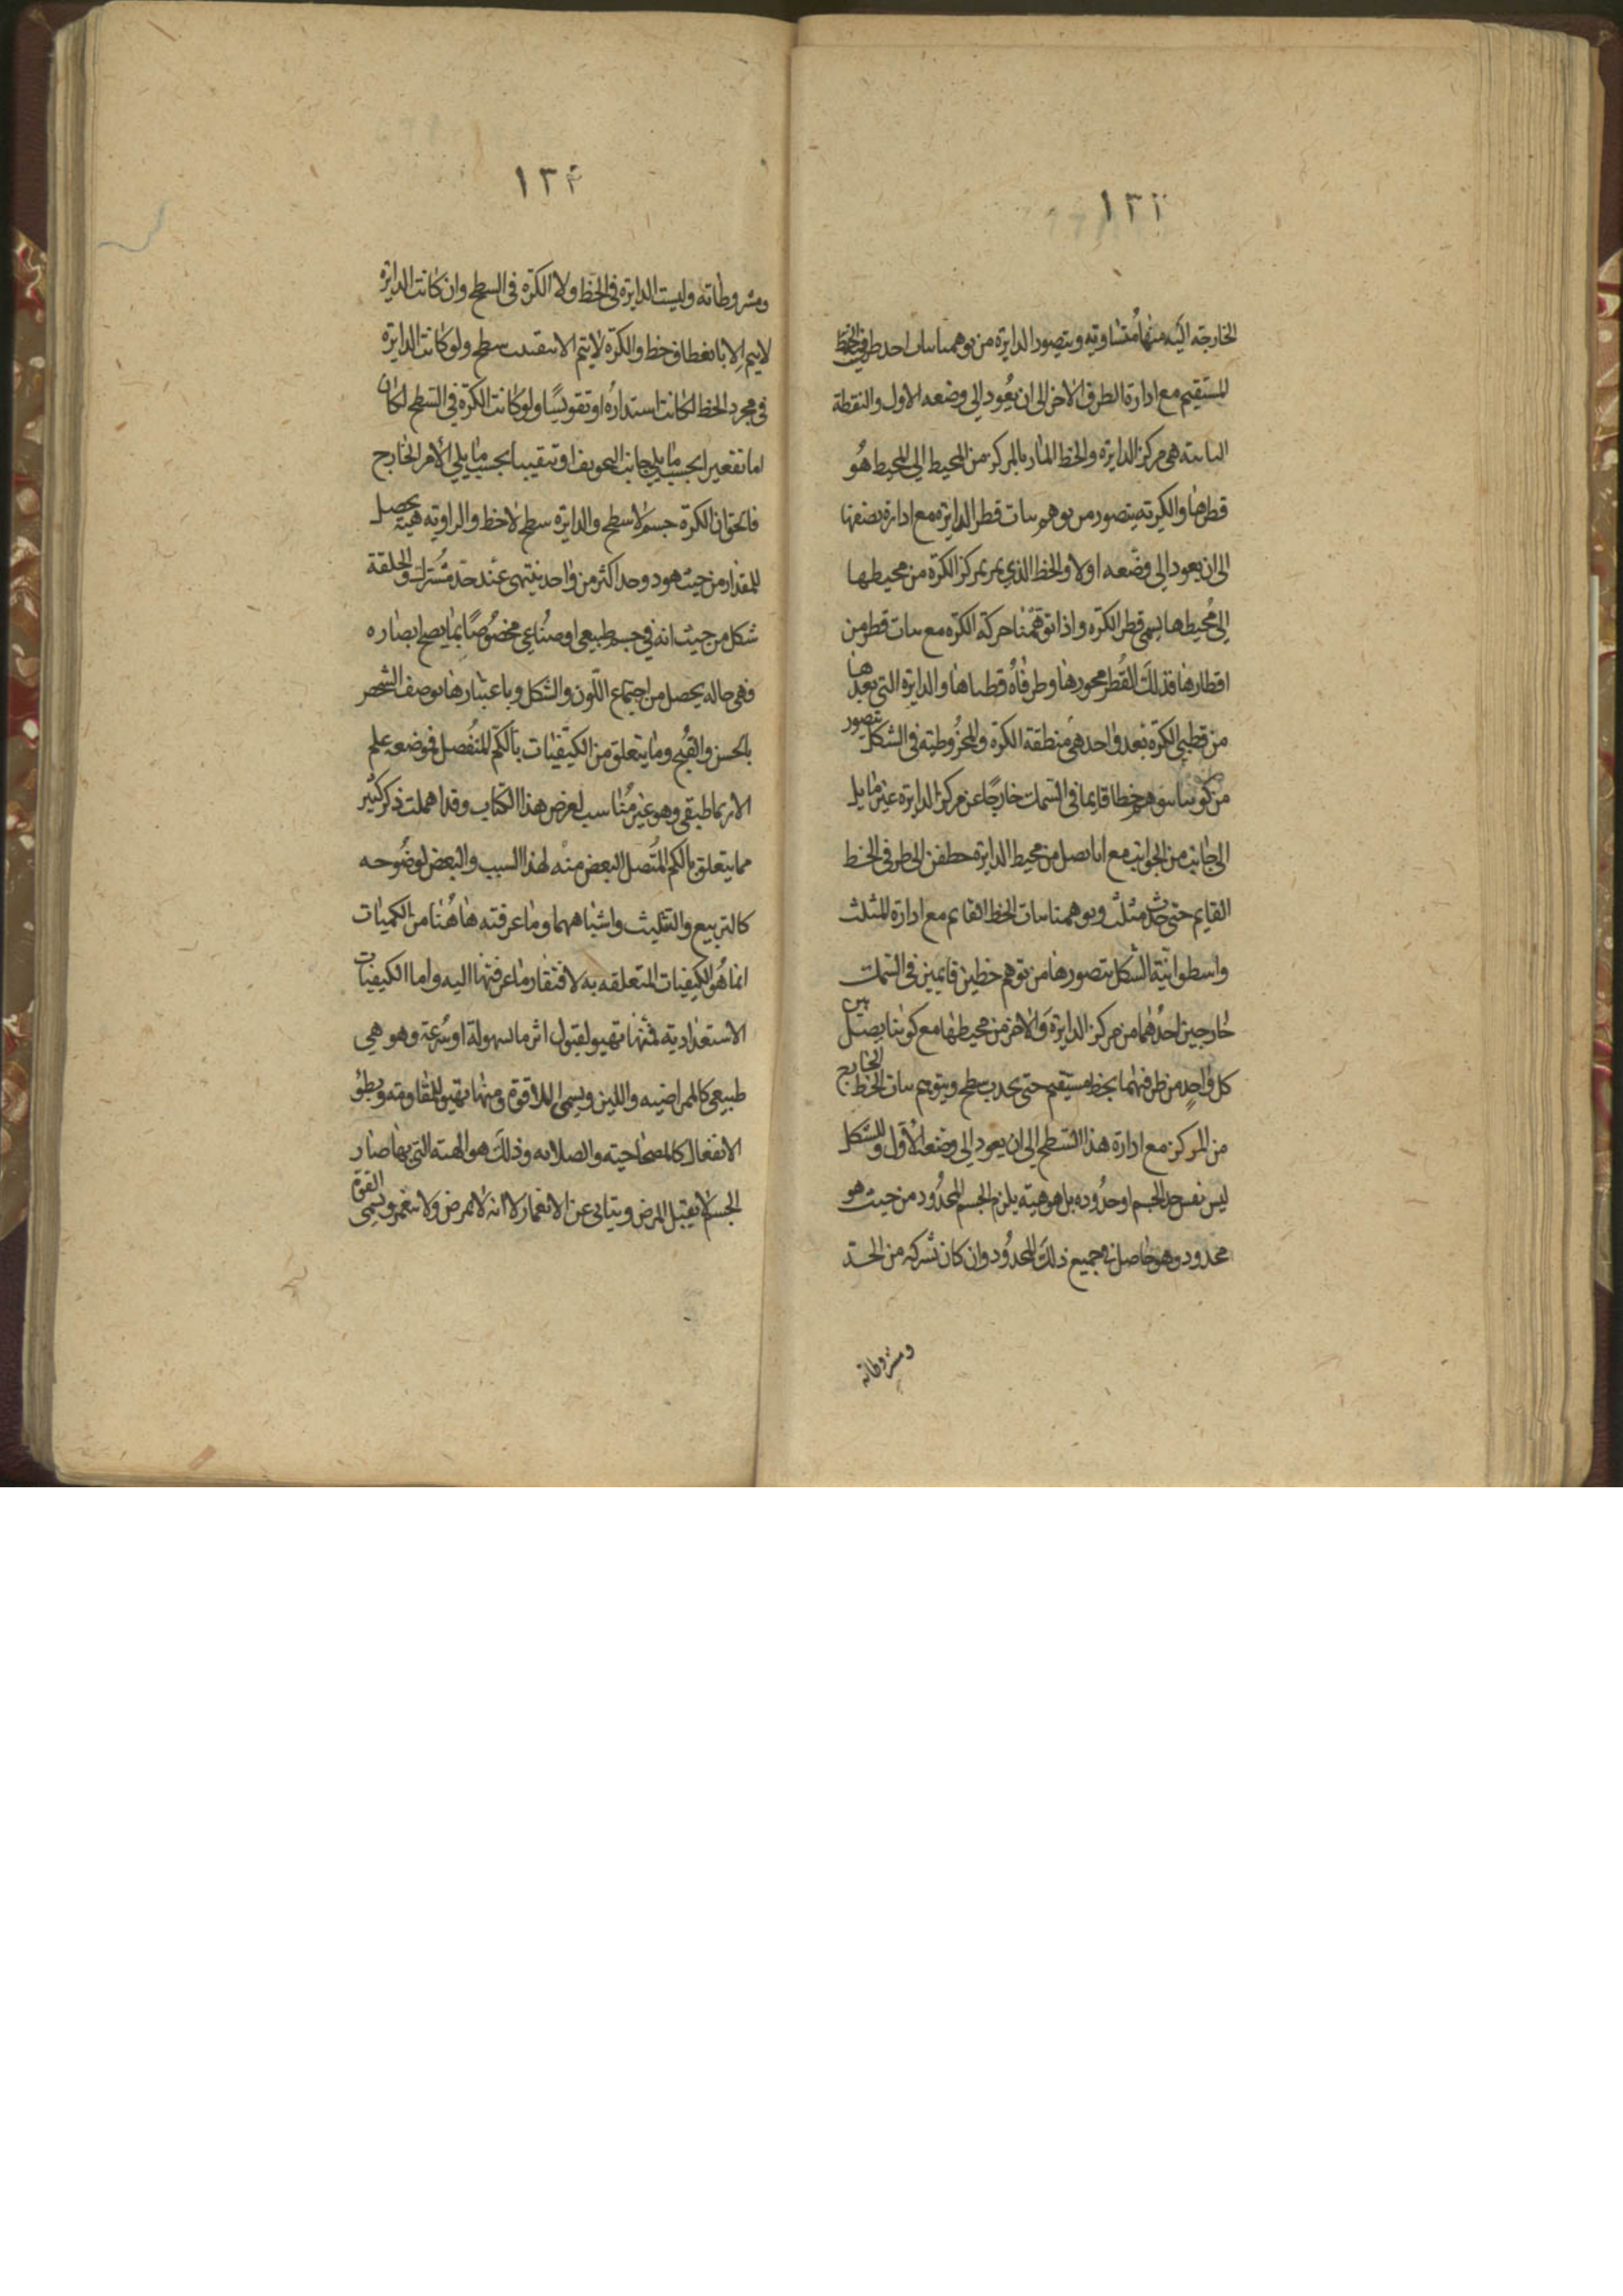 ١٣٣
الخارجة اليه منها متساوية ويتصور الدايرة من توهمنا ثبات احد طرفي الخط
المستقيم مع ادارة الطرف الاخر الى ان يعود الى وضعه الاول والنقطة
الثابتة هى مركز الدايرة والخط المار بالمركز من المحيط الى المحيط هو
قطرها والكرية يتصور من توهم ثبات قطر الدايرة مع ادارة نصفها
الى ان يعود الى وضعه اولا والخط الذي يمر بمركز الكرة من محيطها
الى محيطها يسمى قطر الكرة واذا توهمنا حركة الكرة مع ثبات قطر من
اقطارها فذلك القطر محورها وطرفاه قطباها والدايرة التي بعدها
من قطبي الكرة بعد واحد هى منطقة الكرة والمخروطية في الشكل تتصور
من كوننا نتوهم خطا قايما في السمك خارجا عن مركز الدايرة غير مايل
الى جانب من الجوانب مع انا نصل من محيط الدايرة خطا الى طرفي الخط
القايم حتى حدث مثلث وتوهمنا ثبات الخط القايم مع ادارة المثلث
واسطوانية الشكل تتصورها من توهم خطين قايمين في السمك
خارجين احدهما من مركز الدايرة والاخر من محيطها مع كوننا نصل بين
كل واحد من طرفيهما بخط مستقيم حتى يحدث سطح ويتوهم ثبات الخط الخارج
من المركز مع ادارة هذا السطح الى ان يعود الى وضعه الاول والشكل
ليس نفس حد الجسم او حدوده بل هو هيئة يلزم الجسم المحدود من حيث هو
محدود وهو حاصل في جميع ذلك المحدود وان كان شركة من الحد
ومشروطاته
١٣٤
ومشروطاته وليست الدايرة في الخط ولا الكرة في السطح وان كانت الدايرة
لا يتم الا بانعطاف خط والكرة لا يتم الا بتقبيب سطح ولو كانت الدايرة
في مجرد الخط لكانت استدارة او تقويسا ولو كانت الكرة في السطح لكان
اما تقعيرا بحسب ما يلي جانب التجويف او تقبيبا بحسب ما يلي الامر الخارج
فالحق ان الكرة جسم لا سطح والدايرة سطح لا خط والزاوية هيئة يحصل
للمقدار من حيث هو ذو حد اكثر من واحد ينتهى عند حد مشترك والخلقة
شكل من حيث انه في جسم طبيعي او صناعي مخصوصا بما يصح ابصاره
وهى حالة يحصل من اجتماع اللون والشكل وباعتبارها يوصف الشخص
بالحسن والقبح وما يتعلق من الكيفيات بالكم المنفصل فوضعه علم
الارثماطيقي وهو غير مناسب لغرض هذا الكتاب وقد اهملت ذكر كثير
مما يتعلق بالكم المتصل البعض منه لهذا السبب والبعض لوضوحه
كالتربيع والتثليث واشباههما وما عرفته هاهنا من الكميات
انما هو الكيفيات المتعلقة به لافتقار ما عرفتها اليه واما الكيفيات
الاستعدادية فمنها تهيو لقبول اثر ما بسهولة او سرعة وهو هى
طبيعي كالممراضية واللين ويسمى اللاقوة ومنها تهيو للمقاومة وبطؤ
الانفعال كالمصحاحية والصلابة وذلك هو الهيئة التي بها صار
الجسم لا يقبل المرض ويتابى عن الانغماز لا انه لا يمرض ولا ينغمز ويسمى القوة